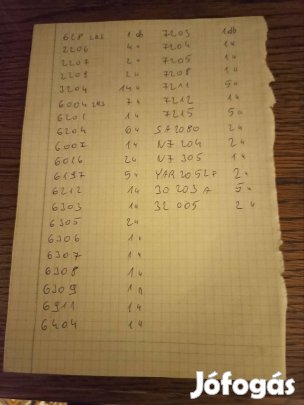 628 2RS 1 db
2206 4"
2207 2"
2208 2"
3204 14"
6004 2RS 7"
6201 1"
6204 6"
6007 1"
6016 2"
6197 5"
6212 1"
6303 1"
6305 2"
6306 1"
6307 1"
6308 1"
6309 1"
6911 1"
6404 1"
7203 1db
7204 1"
7205 1"
7208 1"
7211 5"
7212 1"
7215 5"
SA 2080 2"
NJ 204 2"
NJ 305 1"
YAR 205 2F 2"
30 203 A 5"
32 005 2"
Jófogás